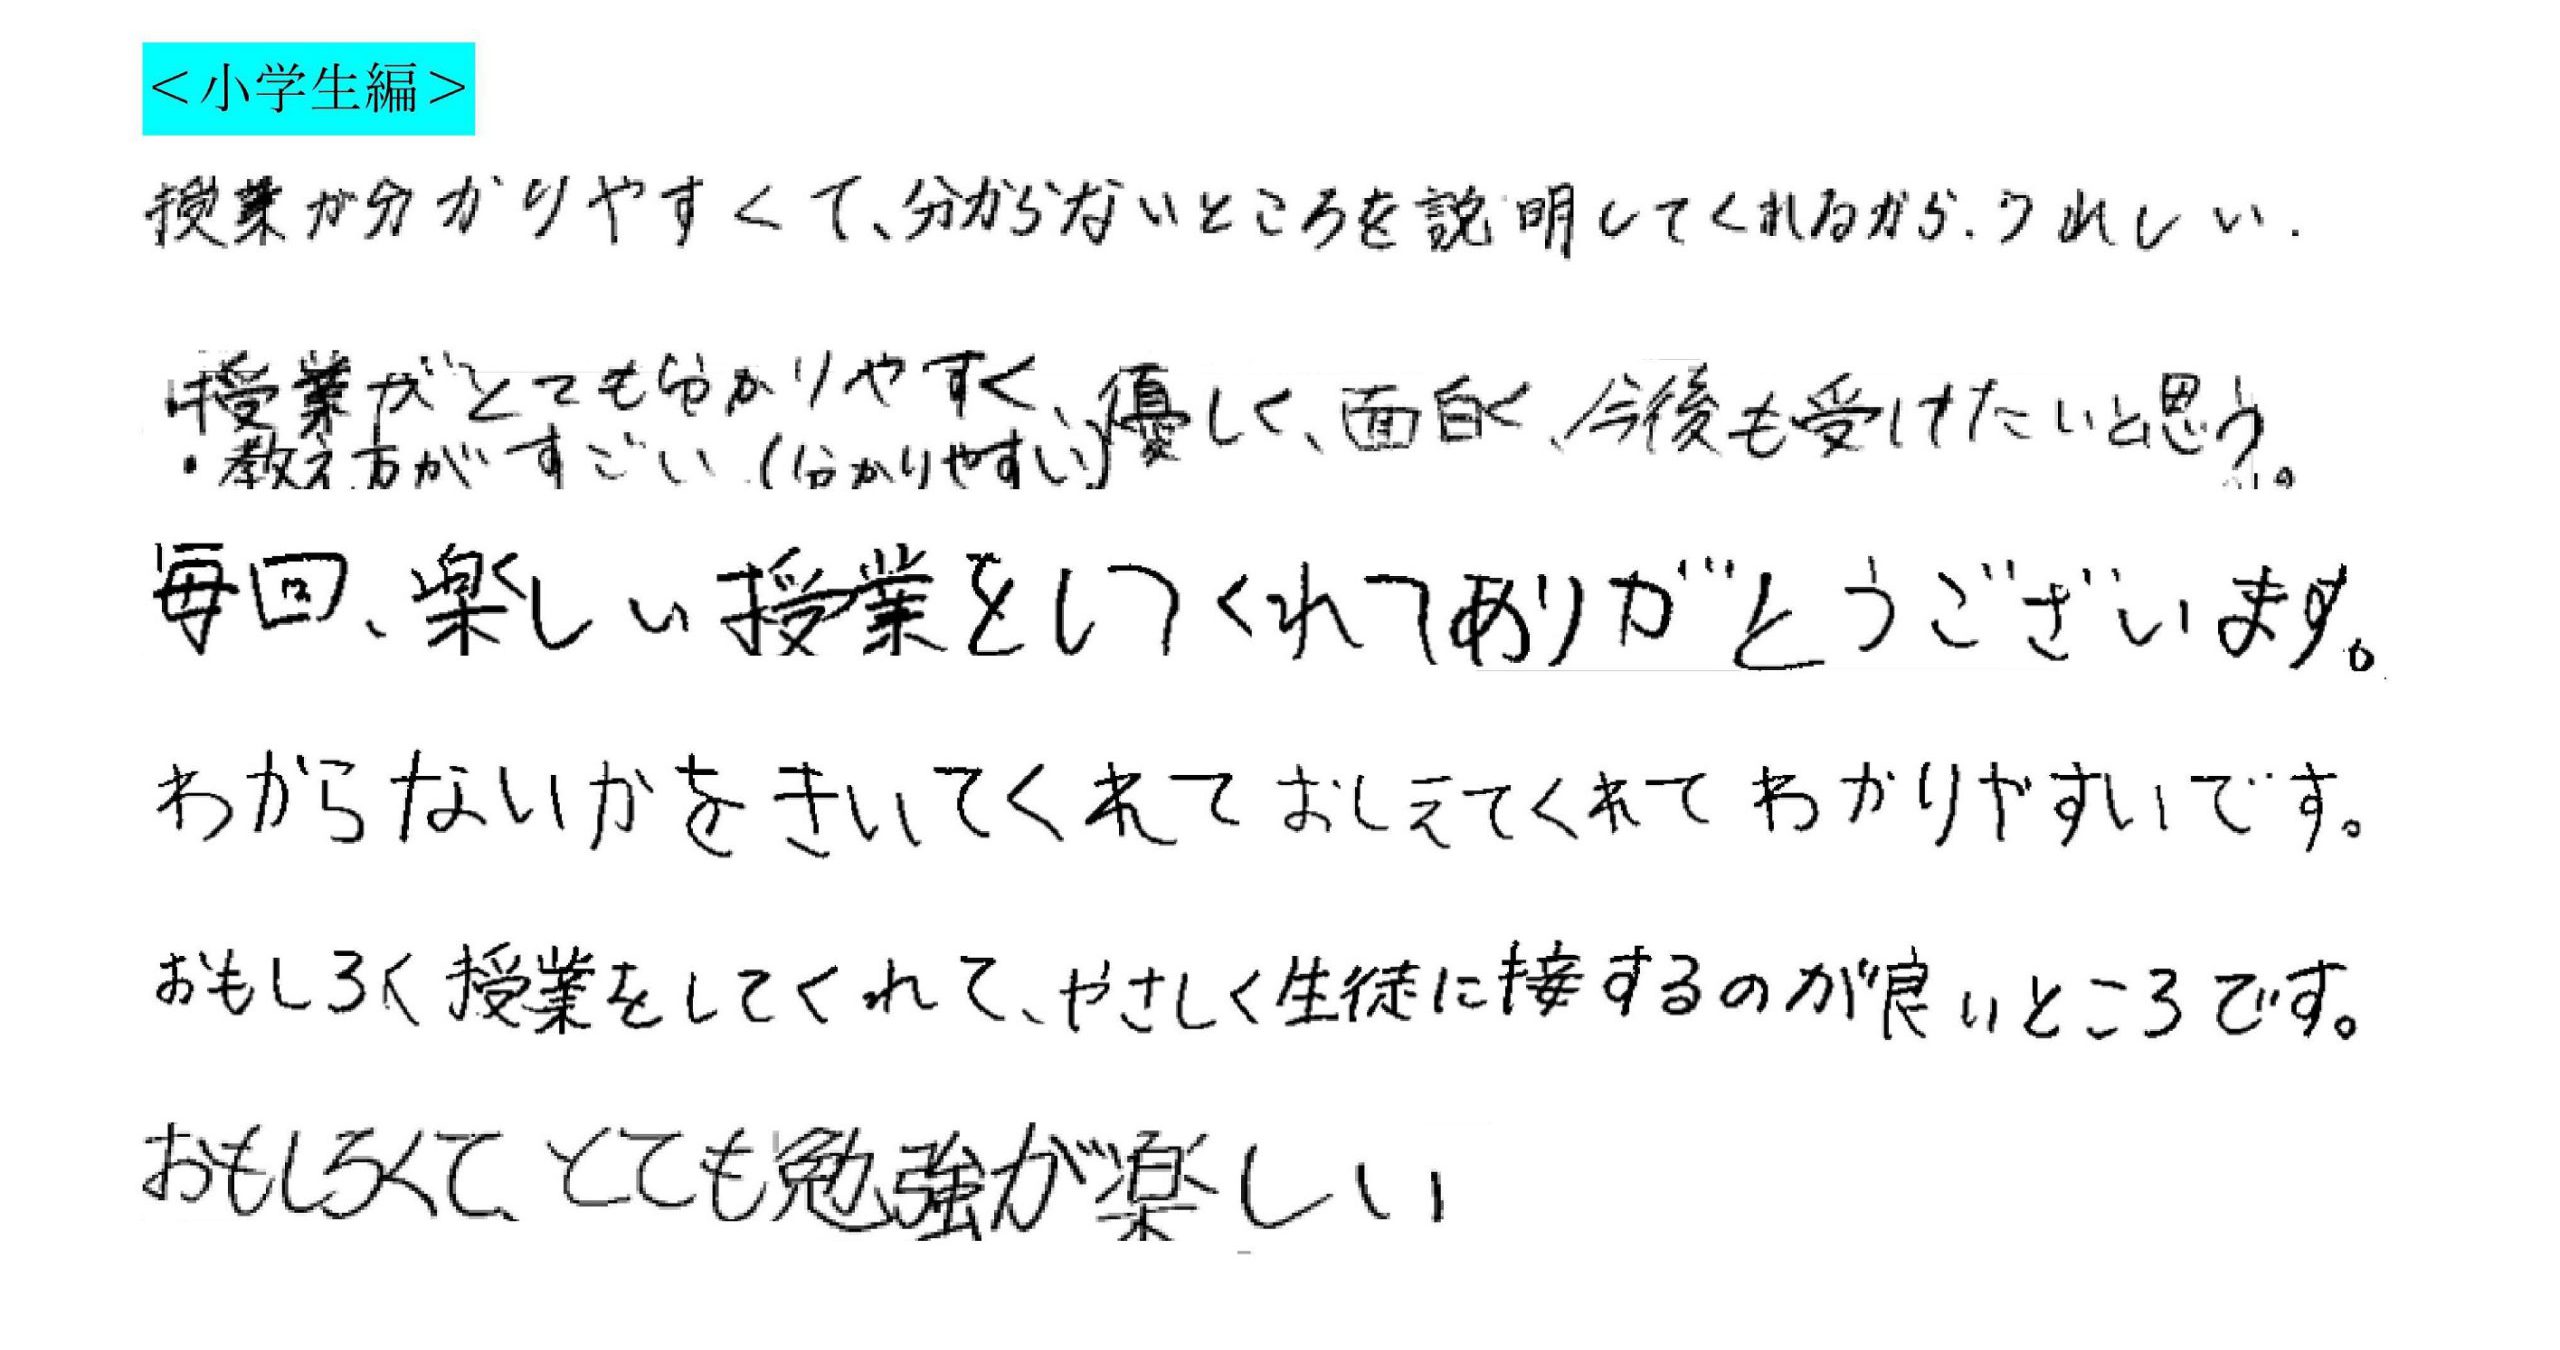 ＜小学生編＞
授業が分かりやすくて、分からないところを説明してくれるから、うれしい.
・授業がとても分かりやすく、優しく、面白く、今後も受けたいと思う。
・教え方がすごい(分かりやすい)
毎回、楽しい授業をしてくれてありがとうございます。
わからないかをきいてくれておしえてくれてわかりやすいです。
おもしろく授業をしてくれて、やさしく生徒に接するのが良いところです。
おもしろくて、とても勉強が楽しい